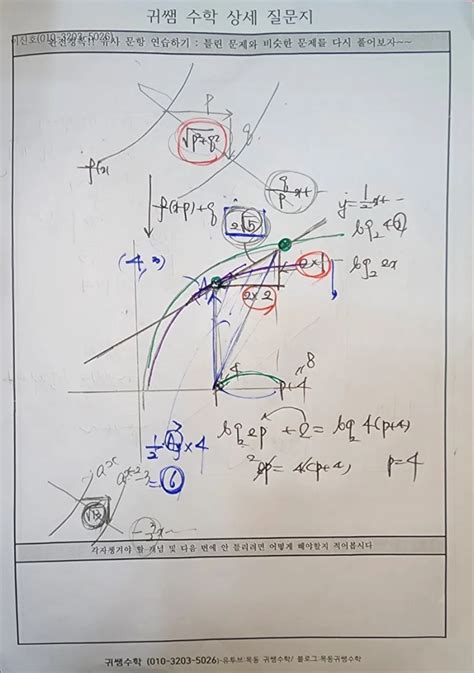 귀쌤 수학 상세 질문지
이진호(010-3203-5026)
완전정복!! 유사 문항 연습하기 : 틀린 문제와 비슷한 문제를 다시 풀어보자~~
p
√p²+q²
q
f(x)
q/p x+
f(x-p)+q
2√5
y=1/2x+
log₂4x
(-4, 3)
A
2×1
log₂2x
2×2
4
8
p
p+4
log₂2p + 2 = log₂4(p+4)
1/2 × 3 × 4
= 6
p=4
aˣ
√13
각자챙겨야 할 개념 및 다음 번에 안 틀리려면 어떻게 해야할지 적어봅시다
귀쌤수학 (010-3203-5026)-유투브:목동 귀쌤수학/ 블로그:목동귀쌤수학